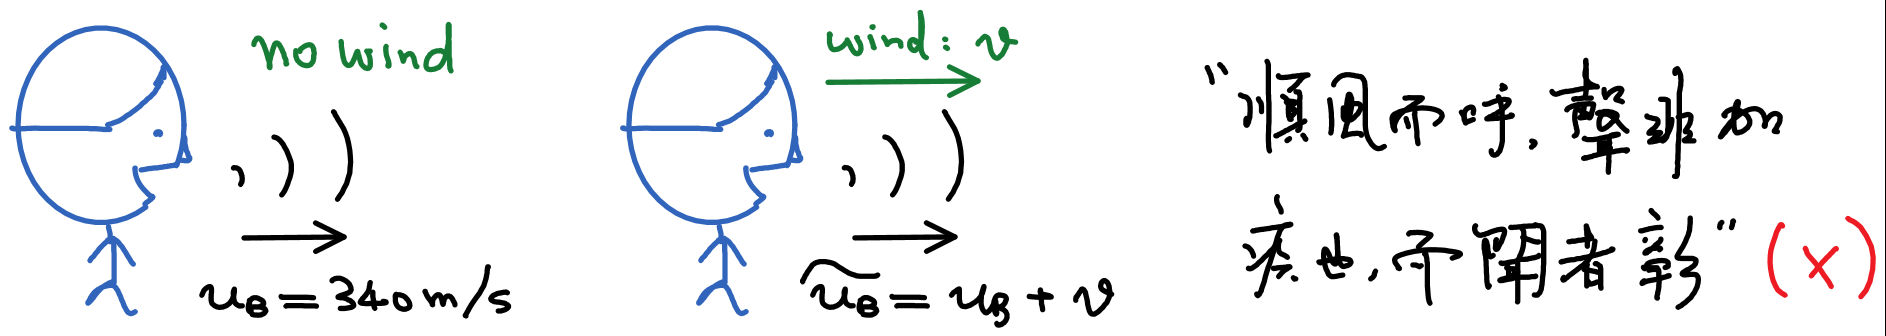 no wind
u_B = 340 m/s
wind: v
\widetilde{u_B} = u_B + v
"順風而呼, 聲非加
疾也, 而聞者彰" (x)